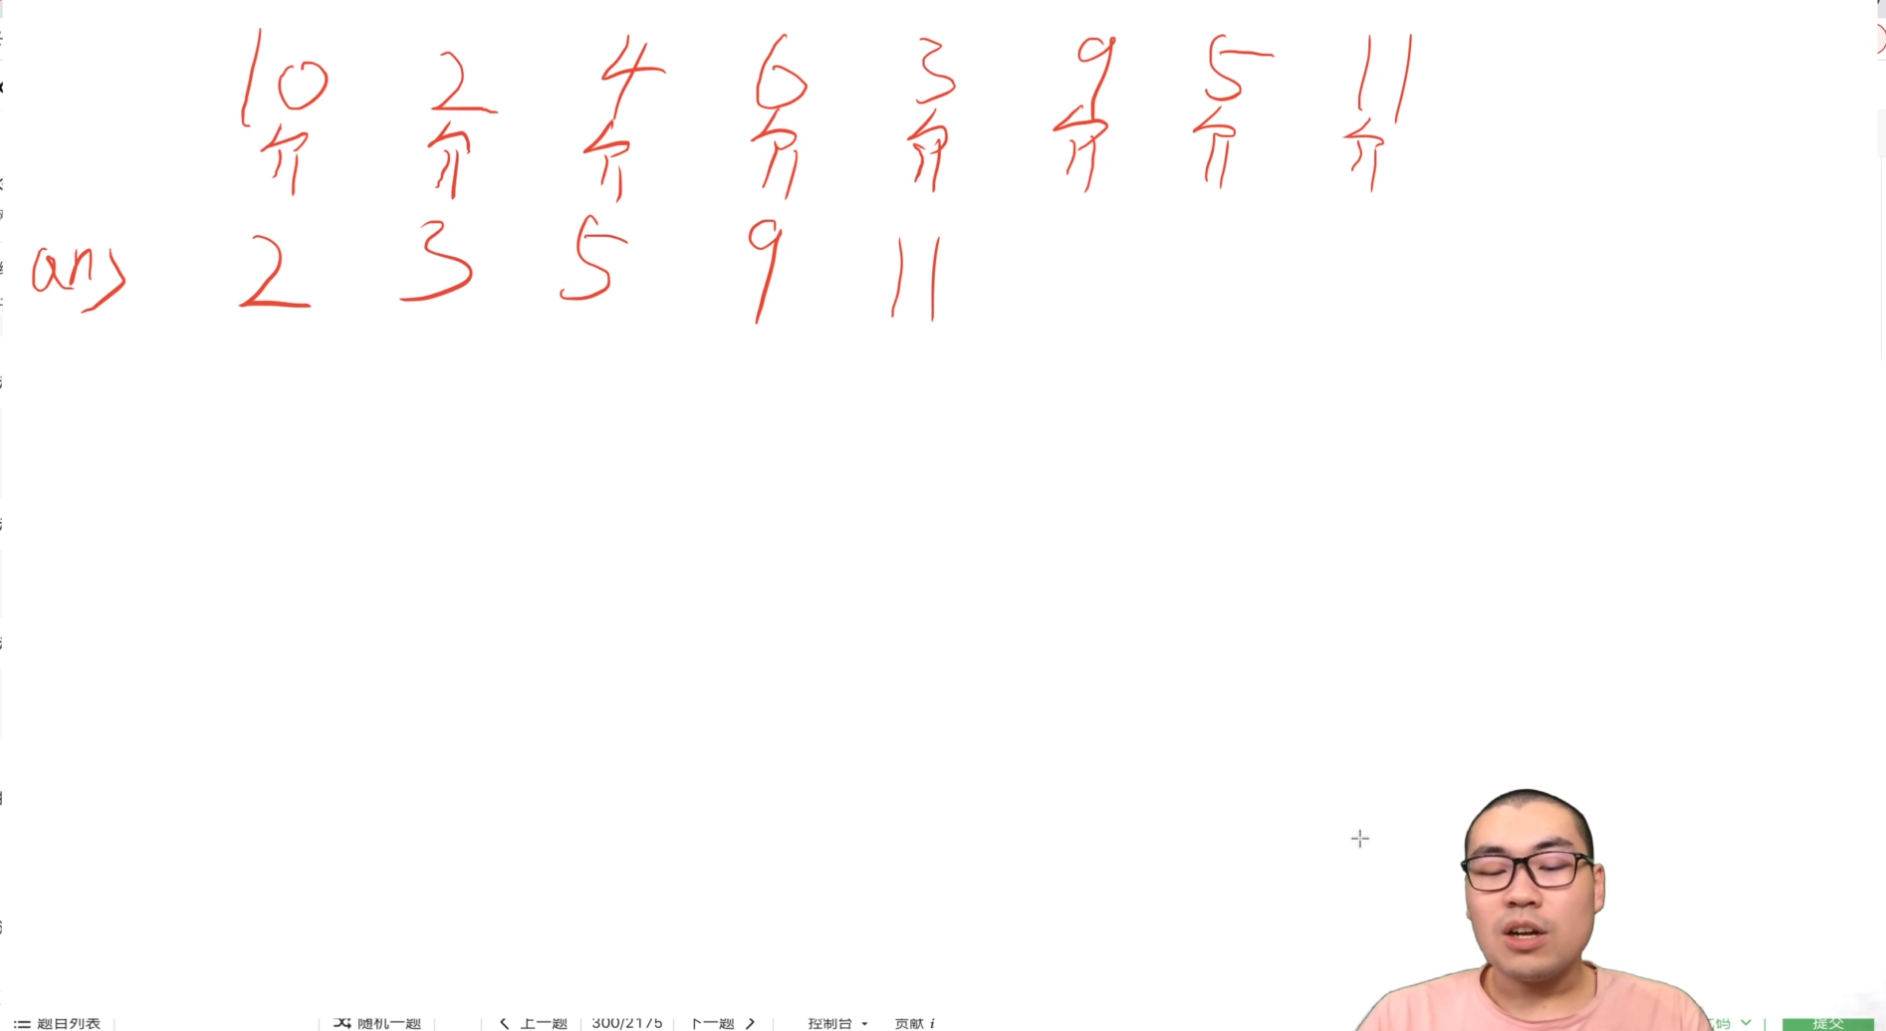 10 2 4 6 3 9 5 11
ans 2 3 5 9 11
题目列表 随机一题 上一题 300/2175 下一题 控制台 贡献 i 码 提交